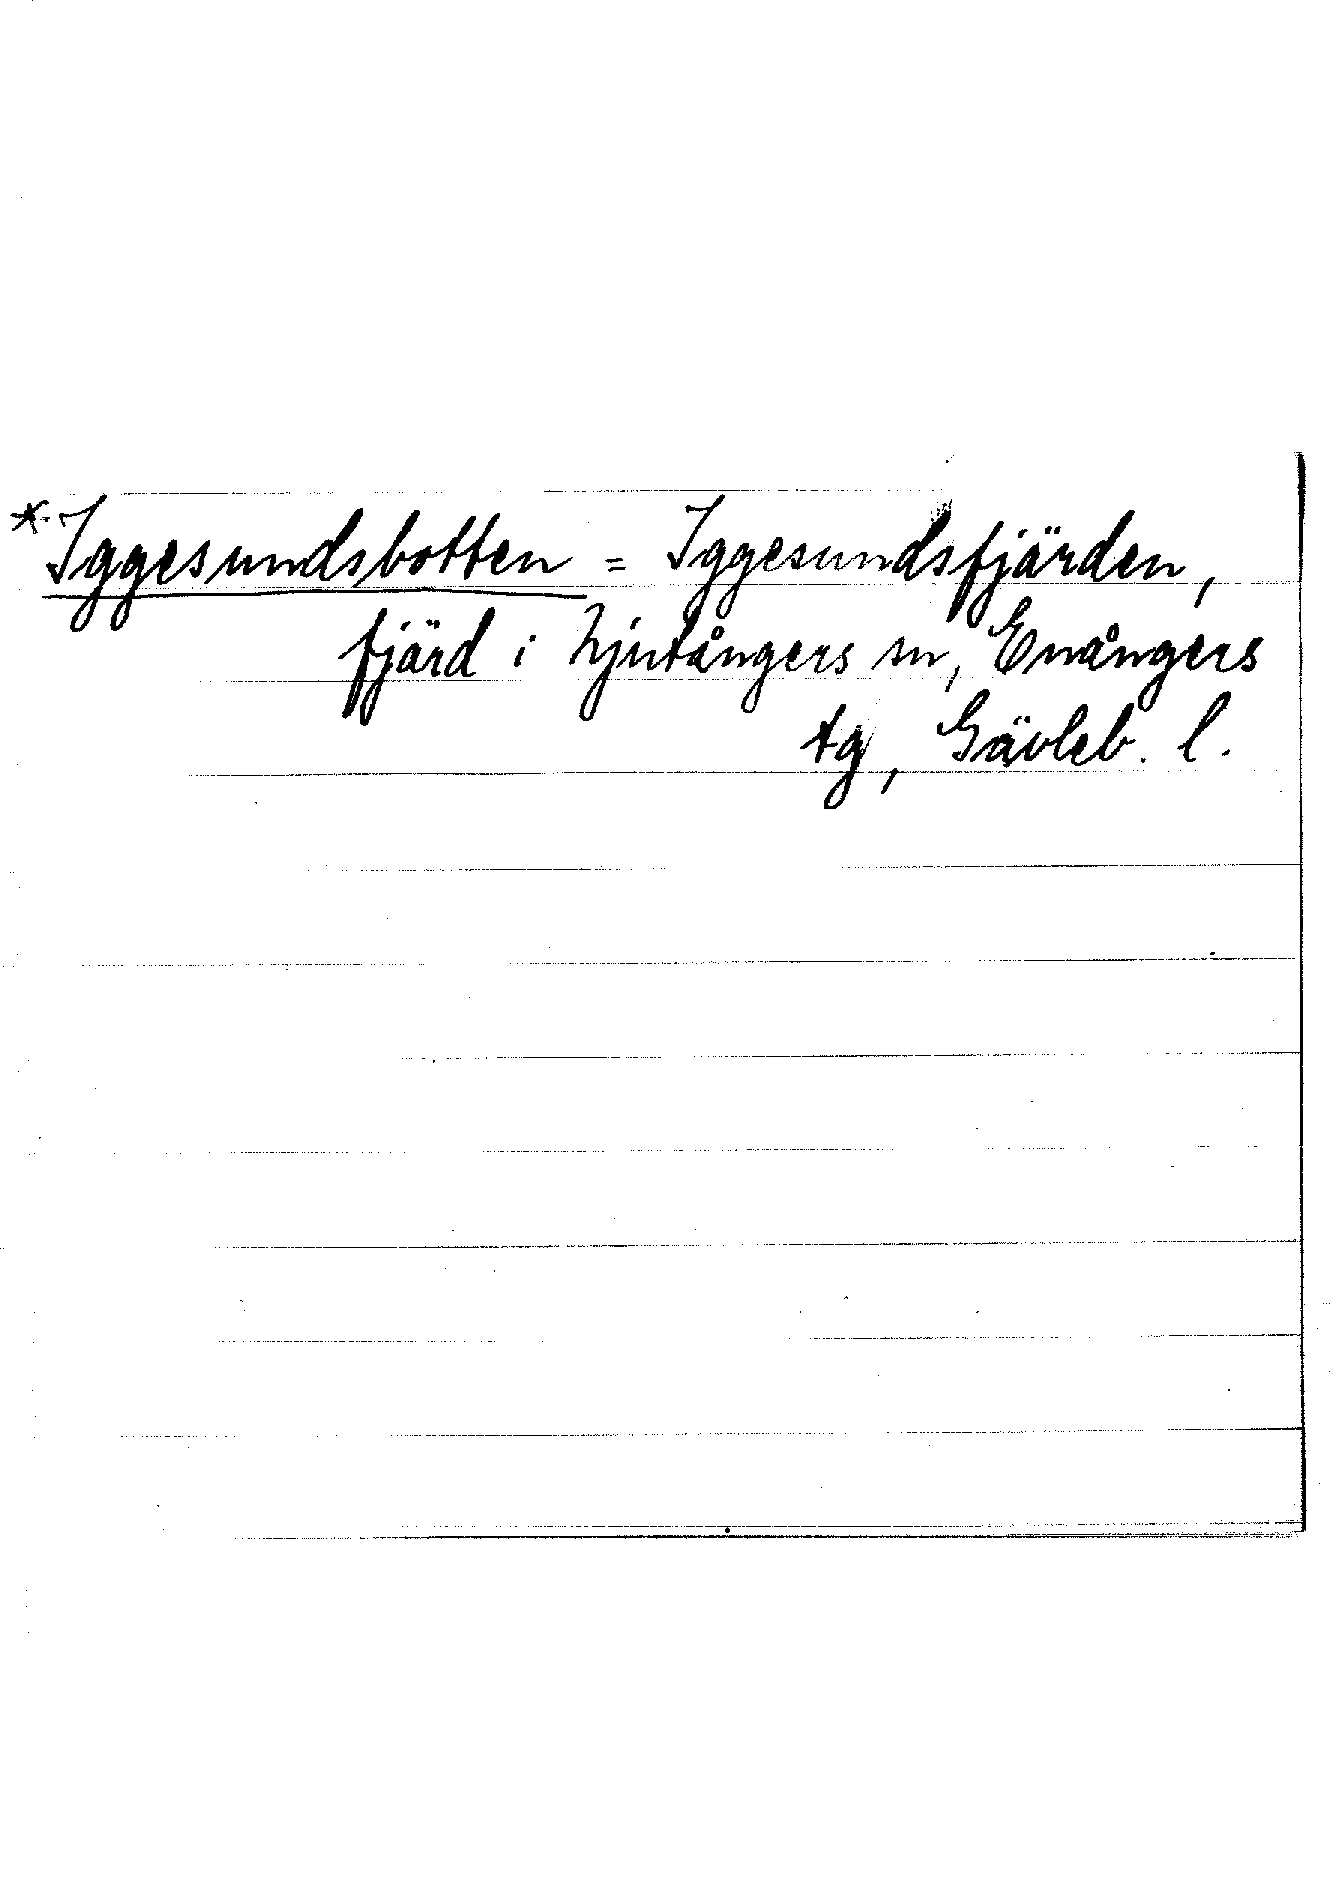 *Iggesundsbotten = Iggesundsfjärden,
fjärd i Njutångers sn, Enångers
tg, Gävleb. l.